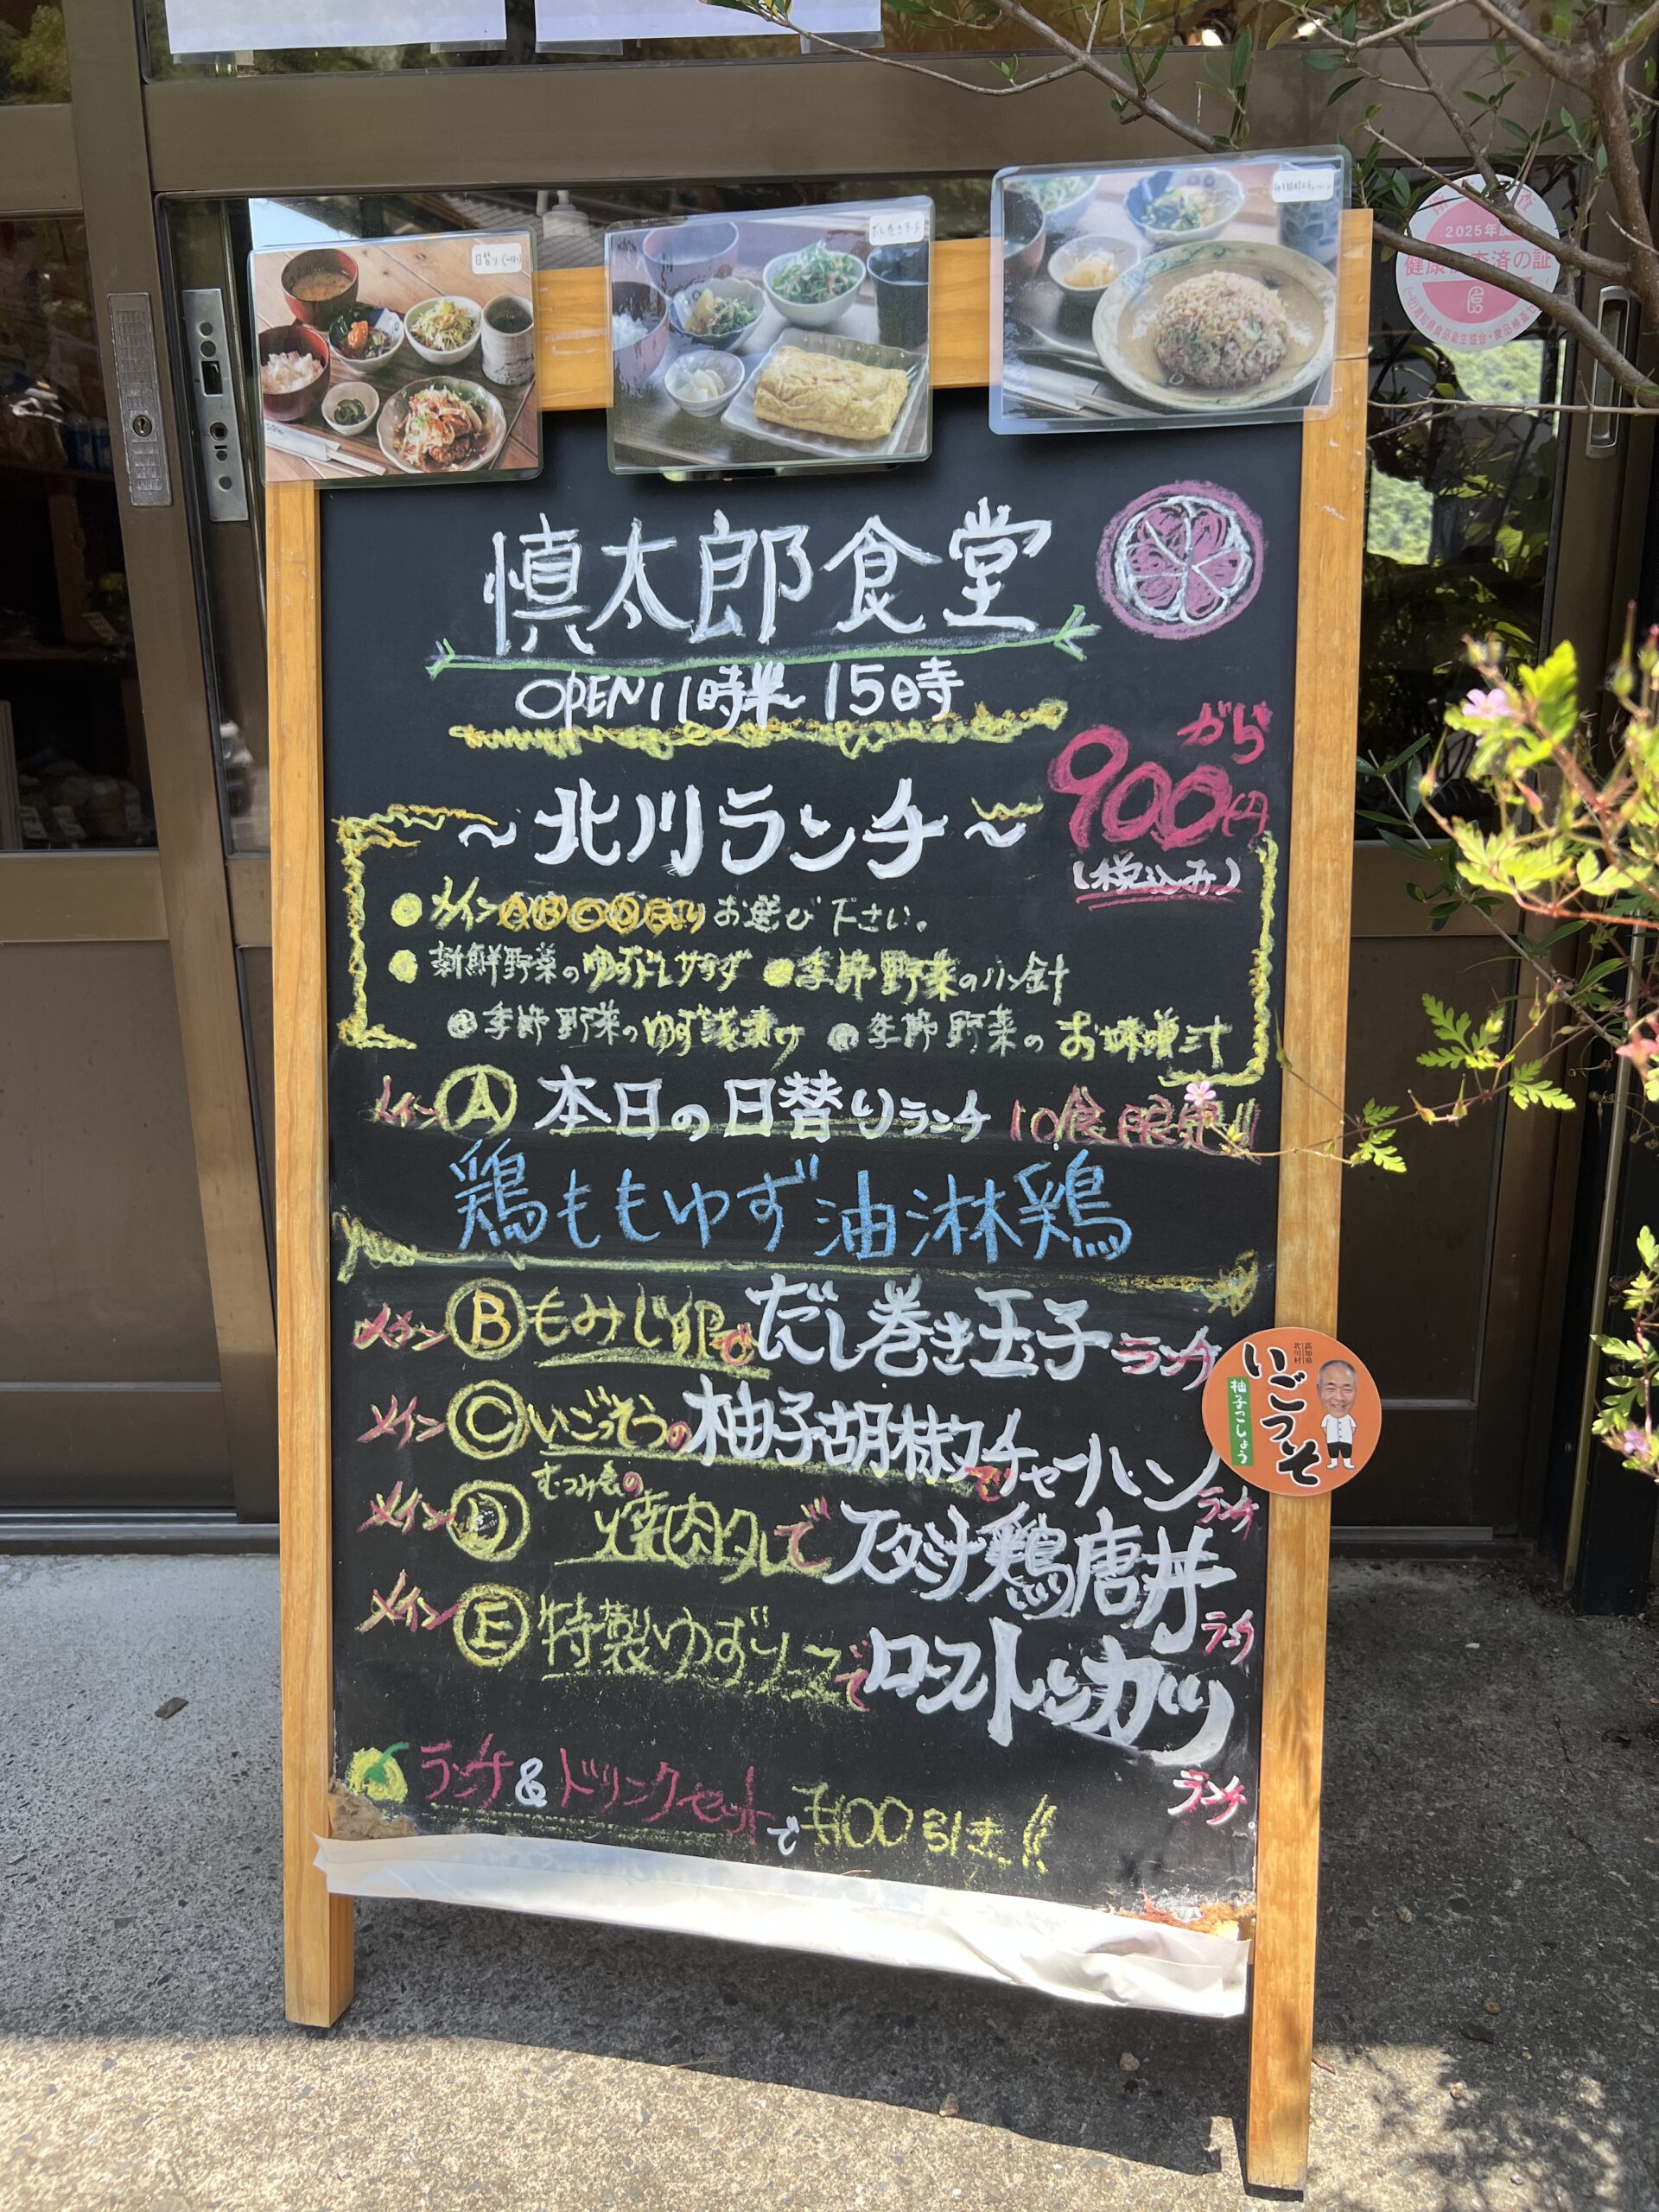 日替り(一例)
だし巻き玉子
慎太郎食堂
OPEN 11時半~15時
~北川ランチ~
900円から
(税込み)
●メインⒶⒷⒸⒹⒺよりお選び下さい。
●新鮮野菜のゆずドレサラダ ●季節野菜の小鉢
●季節野菜のゆず浅漬け ●季節野菜のお味噌汁
メインⒶ 本日の日替りランチ 10食限定!!
鶏ももゆず油淋鶏
メインⒷもみじ卵でだし巻き玉子ランチ
メインⒸいごっそうの柚子胡椒でチャーハンランチ
メインⒹむつみ会の焼肉タレでスタミナ鶏唐丼ランチ
メインⒺ特製ゆずソースでロースとんカツランチ
ランチ&ドリンクセットで¥100引き!!
高知県
北川村
いごっそ
柚子こしょう
2025年度
健康検査済の証